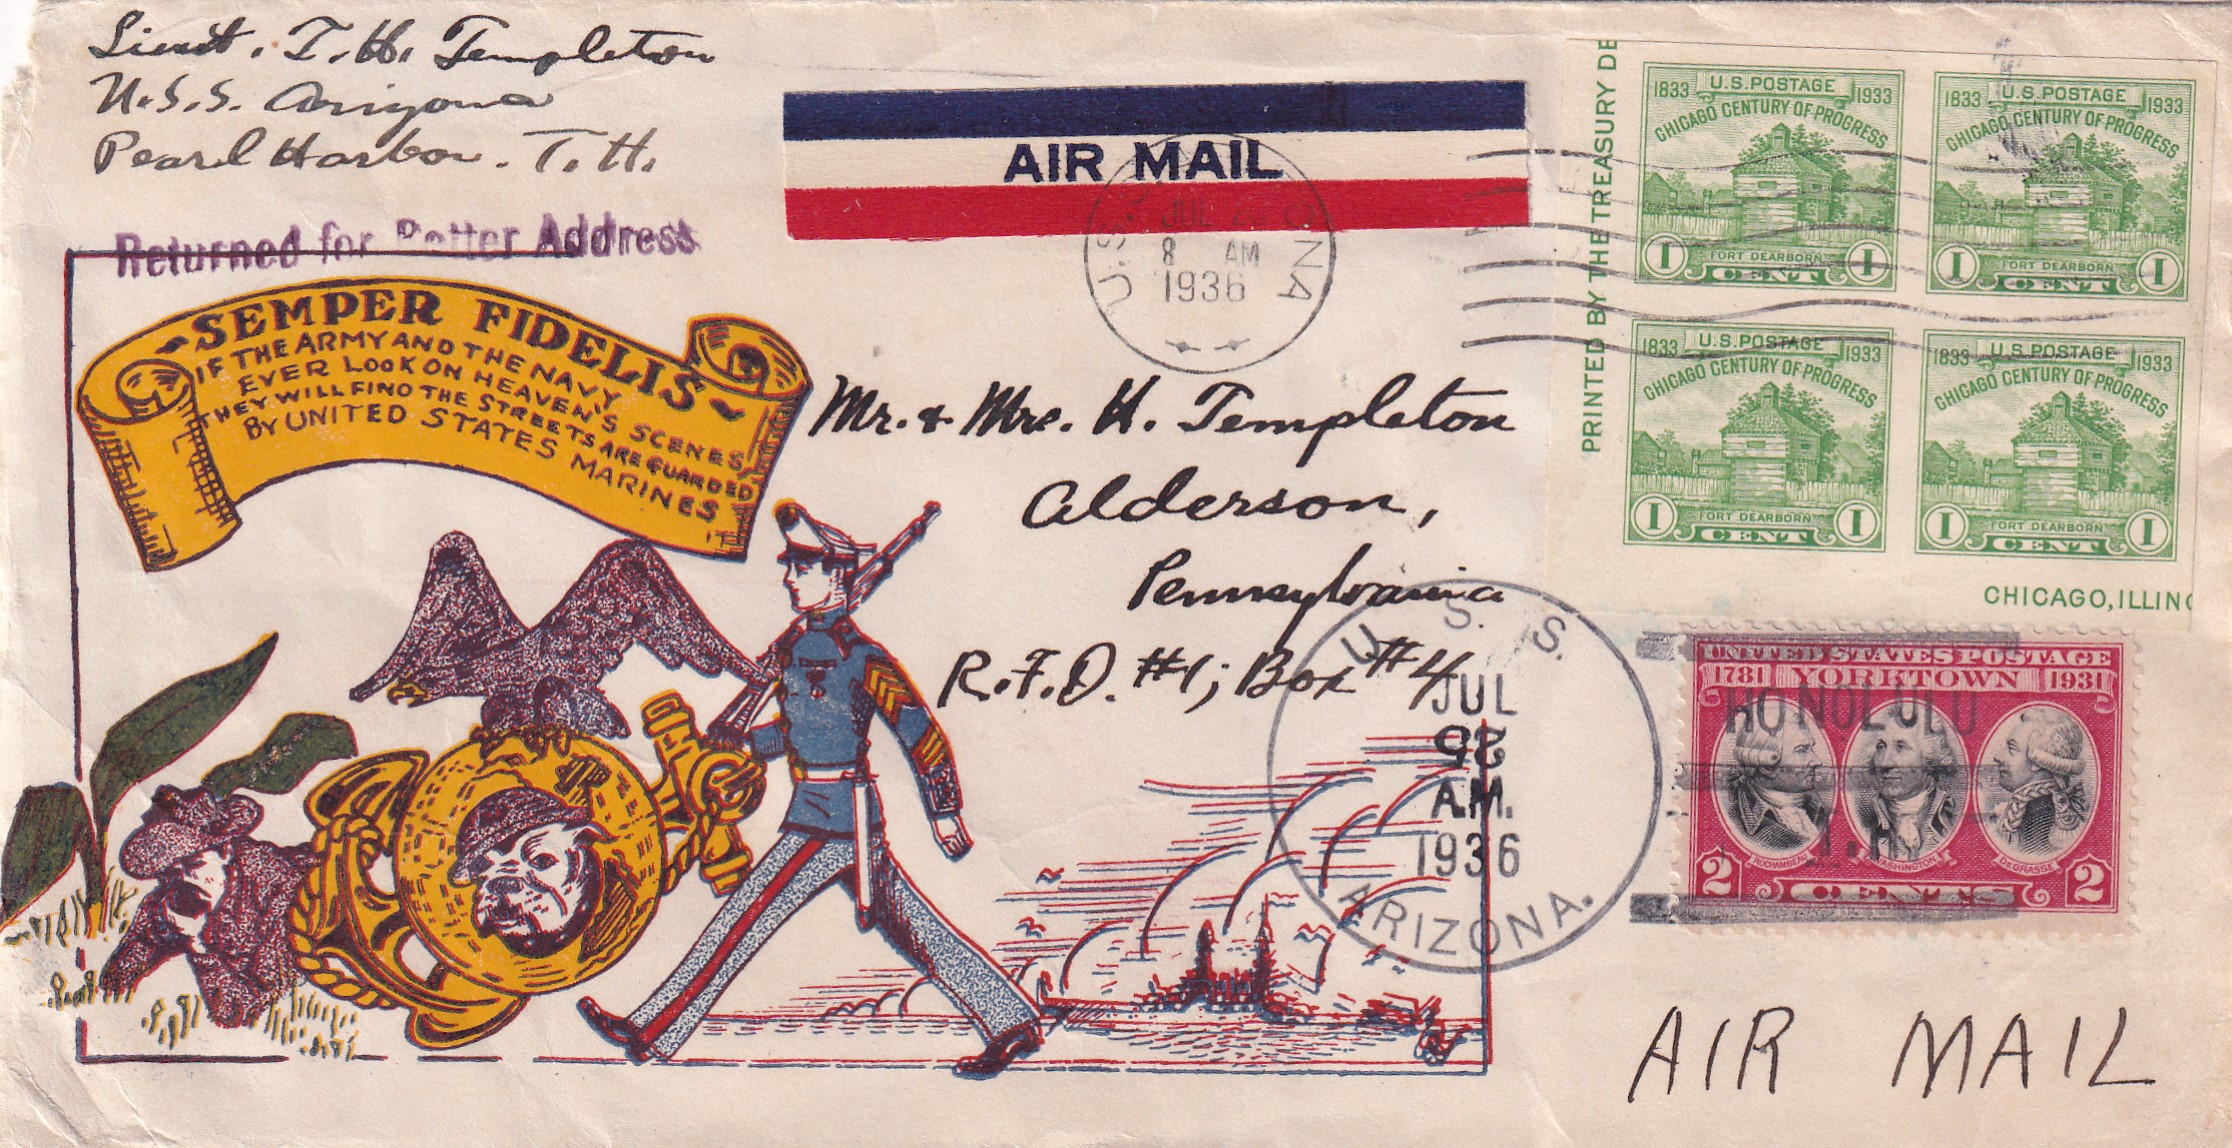 Lieut. T. H. Templeton
U.S.S. Arizona
Pearl Harbor. T. H.
Returned for Better Address
AIR MAIL
U.S.
JUL
8 AM
1936
PRINTED BY THE TREASURY DE
1833 U.S. POSTAGE 1933
CHICAGO CENTURY OF PROGRESS
FORT DEARBORN
1 CENT 1
1833 U.S. POSTAGE 1933
CHICAGO CENTURY OF PROGRESS
FORT DEARBORN
1 CENT 1
1833 U.S. POSTAGE 1933
CHICAGO CENTURY OF PROGRESS
FORT DEARBORN
1 CENT 1
1833 U.S. POSTAGE 1933
CHICAGO CENTURY OF PROGRESS
FORT DEARBORN
1 CENT 1
CHICAGO, ILLIN
~SEMPER FIDELIS~
IF THE ARMY AND THE NAVY
EVER LOOK ON HEAVEN'S SCENES,
THEY WILL FIND THE STREETS ARE GUARDED
BY UNITED STATES MARINES
Mr. & Mrs. H. Templeton
Alderson,
Pennsylvania
R.F.D. #1; Box #4
U. S. S.
JUL
25
A.M.
1936
ARIZONA.
UNITED STATES POSTAGE
1781 YORKTOWN 1931
HONOLULU
ROCHAMBEAU WASHINGTON DE GRASSE
2 CENTS 2
AIR MAIL